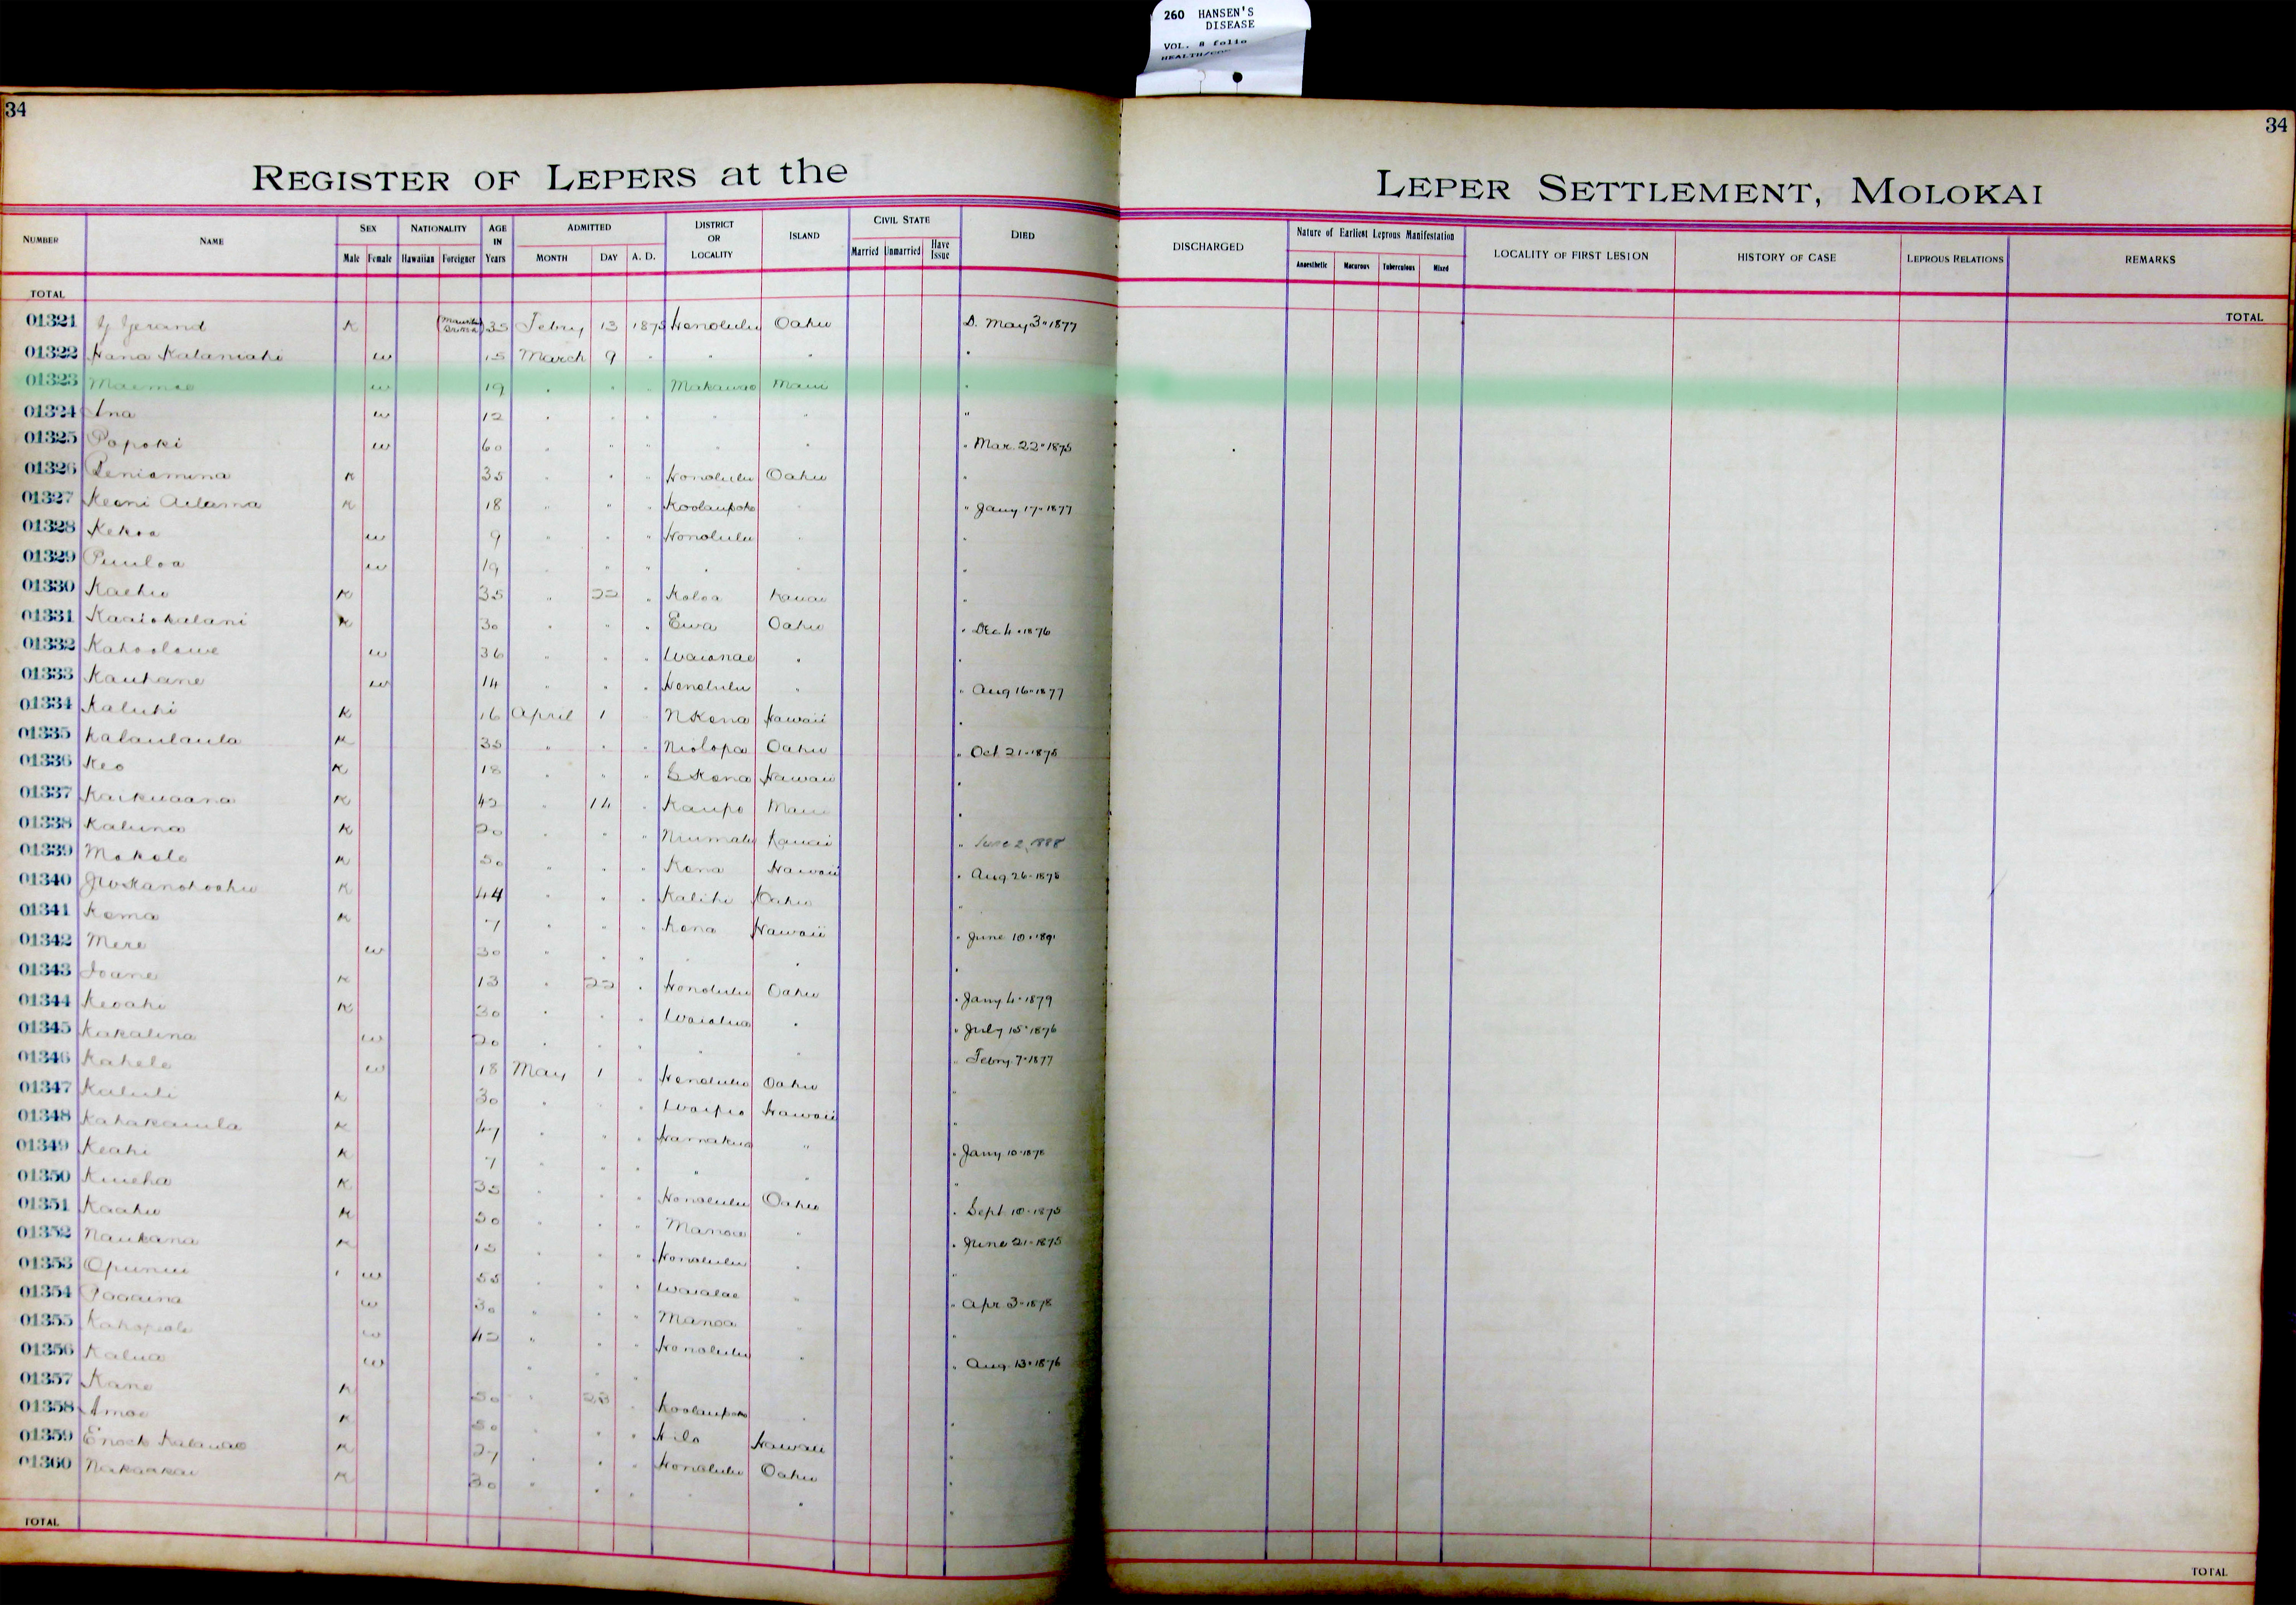 260 HANSEN'S
DISEASE
VOL. 8 folio
34
34
REGISTER OF LEPERS at the LEPER SETTLEMENT, MOLOKAI
NUMBER NAME SEX NATIONALITY AGE IN Years ADMITTED DISTRICT OR LOCALITY ISLAND CIVIL STATE DIED DISCHARGED Nature of Earliest Leprous Manifestation LOCALITY OF FIRST LESION HISTORY OF CASE LEPROUS RELATIONS REMARKS
Male Female Hawaiian Foreigner MONTH DAY A. D. Married Unmarried Have Issue Anaesthetic Macurous Tuberculous Mixed
TOTAL TOTAL
01321 K 35 Febry 13 1875 Honolulu Oahu D. May 3 " 1877
01322 Hana Kalaniahi w 15 March 9 " " " "
01323 Maemae w 19 " " " Makawao Maui "
01324 Ina w 12 " " " " " "
01325 Popoki w 60 " " " " " " Mar. 22 " 1875
01326 Peniamina K 35 " " " Honolulu Oahu "
01327 Keoni Ailama K 18 " " " Koolaupoko " " Jany 17 " 1877
01328 Kekoa w 9 " " " Honolulu " "
01329 Puuloa w 19 " " " " " "
01330 Kaehu K 35 " 22 " Koloa Kauai "
01331 Kaaiokalani K 30 " " " Ewa Oahu " Dec 4 " 1876
01332 Kahoolawe w 36 " " " Waianae " "
01333 Kauhane w 14 " " " Honolulu " " Aug 16 " 1877
01334 Kaluhi K 16 April 1 " N Kona Hawaii "
01335 Kalaulaula K 35 " " " Niolopa Oahu " Oct 21 " 1875
01336 Keo K 18 " " " S Kona Hawaii "
01337 Kaikuaana K 42 " 14 " Kaupo Maui "
01338 Kaluna K 20 " " " Niumalu Kauai " June 2, 1888
01339 Makole K 50 " " " Kona Hawaii " Aug 26 " 1878
01340 K 44 " " " Kalihi Oahu "
01341 Kema K 7 " " " Kona Hawaii " June 10 " 1891
01342 Mere w 30 " " " " " "
01343 Ioane K 13 " 22 " Honolulu Oahu " Jany 4 " 1879
01344 Keoahi K 30 " " " Waialua " " July 15 " 1876
01345 Kakalina w 20 " " " " " " Febry 7 " 1877
01346 Kahele w 18 May 1 " Honolulu Oahu "
01347 Kaluli K 30 " " " Waipio Hawaii "
01348 Kahakauila K 47 " " " Hamakua " " Jany 10 " 1878
01349 Keahi K 7 " " " " " "
01350 Kuieha K 35 " " " Honolulu Oahu " Sept 10 " 1875
01351 Kaahu K 50 " " " Manoa " " June 21 " 1875
01352 Naukana K 15 " " " Honolulu " "
01353 Opunui w 55 " " " Waialae " " Apr 3 " 1878
01354 w 30 " " " Manoa " "
01355 w 42 " " " Honolulu " " Aug 13 " 1876
01356 Kalua w " " "
01357 Kane K 50 " 28 " Koolaupoko " "
01358 Amoe K 50 " " " Hilo Hawaii "
01359 Enoch Kalauao K 27 " " " Honolulu Oahu "
01360 Nakaakai K 30 " " " " " "
TOTAL TOTAL